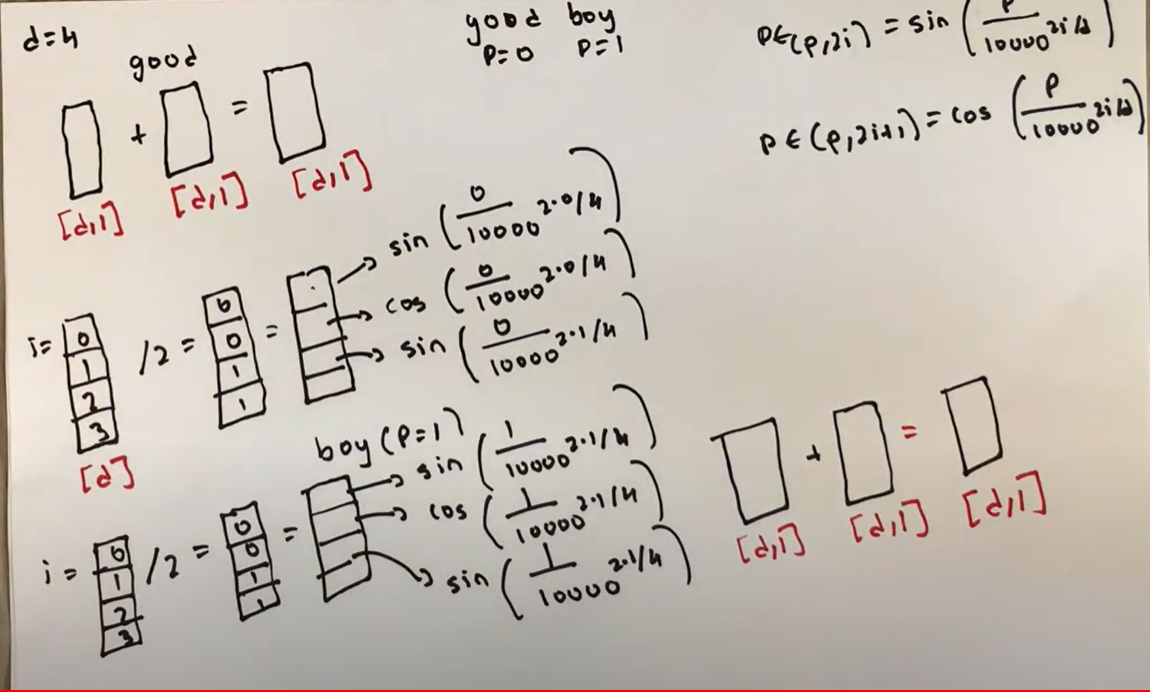 d=4
good boy
P=0 P=1
PE(P,2i) = sin (P/10000^2i/d)
PE(P,2i+1) = cos (P/10000^2i/d)
good
+ =
[d,1] [d,1] [d,1]
sin (0/10000^2·0/4)
cos (0/10000^2·0/4)
sin (0/10000^2·1/4)
i= 0 1 2 3 /2 = 0 0 1 1 =
[d]
boy (P=1)
sin (1/10000^2·1/4)
cos (1/10000^2·1/4)
sin (1/10000^2·1/4)
i = 0 1 2 3 /2 = 0 0 1 1 =
+ =
[d,1] [d,1] [d,1]